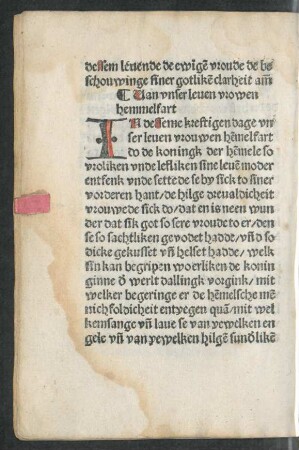 dessem leuende de ewigē vroude de be
schouwinge siner gotlikē clarheit amē
¶ Uan vnser leuen vrowen
hemmelfart
IN desseme krestigen dage vn
ser leuen vrouwen hēmelfart
do de koningk der hēmele so
vroliken vnde lefliken sine leuē moder
entfenk vnde sette de se by sick to siner
vorderen hant/ de hilge dreualdicheit
vrouwede sick do/ dat en is neen wun
der dat sik got so sere vroude to er/ den
se so sachtliken gevodet hadde/ vn̄ð so
dicke gekusset vn̄ helset hadde/ welk
sin kan begripen woerliken de konin
ginne ð werlt dallingk vorgink/ mit
welker begeringe er de hēmelsche me
nichfoldicheit entyegen quā/ mit wel
kem sange vn̄ laue se van yewelken en
gele vn̄ van yewelken hilgē sunðlikē